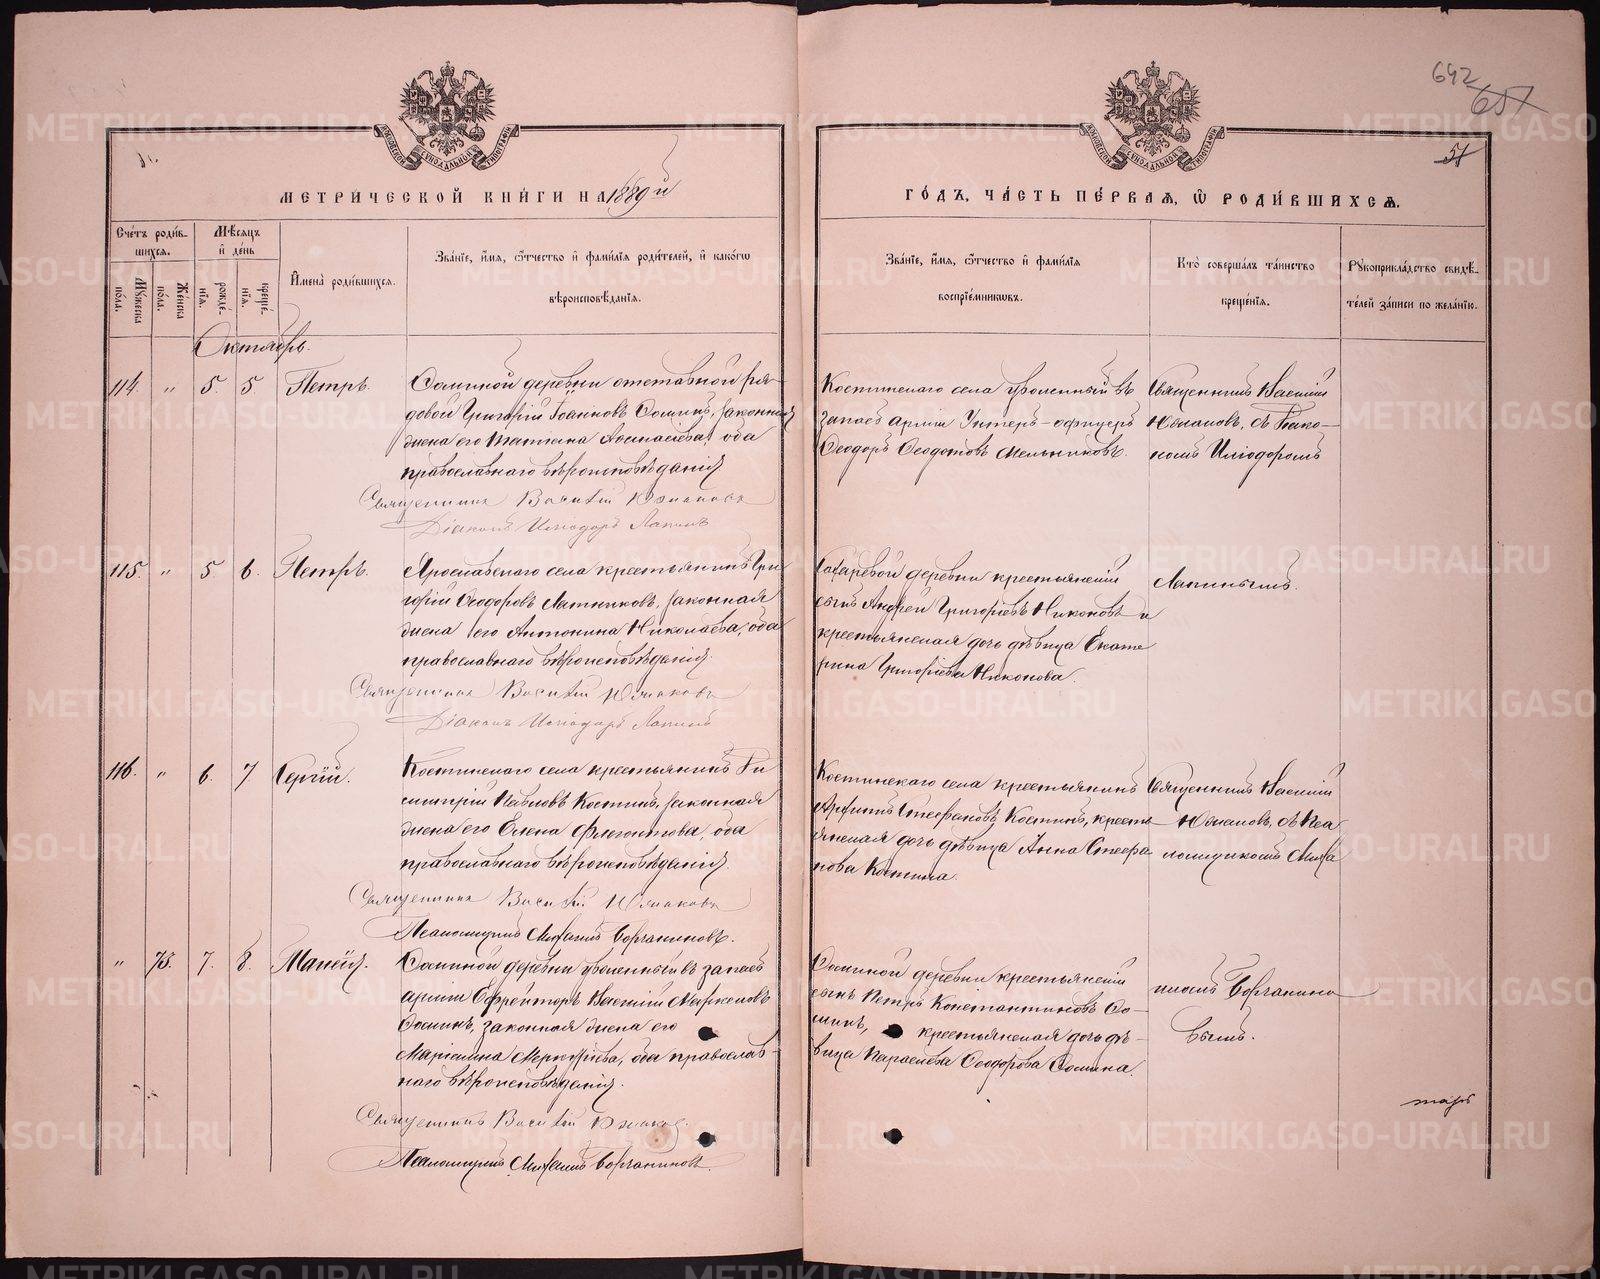 642
657
51
МЕТРИЧЕСКОЙ КНИГИ НА 1889й
ГОДЪ, ЧАСТЬ ПЕРВАЯ, Ѡ РОДИВШИХСЯ.
Счетъ родив-
шихся.
Мужеска пола.
Женска пола.
Мѣсяцъ
и день
рожде-
нія.
креще-
нія.
Имена родившихся.
Званіе, имя, ѿчество и фамилія родителей, и какогѡ
вѣроисповѣданія.
Званіе, имя, ѿчество и фамилія
воспріемникѡвъ.
Кто совершалъ таинство
крещенія.
Рукоприкладство свидѣ-
телей записи по желанію.
Октябрь.
114. " 5. 5. Петръ.
Соминой деревни отставной ря-
довой Григорій Іоанновъ Соминъ, законная
жена его Татіана Аѳанасіева, оба
православнаго вѣроисповѣданія
Священникъ Василій Южаковъ
Діаконъ Иліодоръ Лапинъ
Костинскаго села уволенный въ
запасъ арміи Унтеръ-офицеръ
Ѳеодоръ Ѳеодотовъ Мельниковъ.
Священникъ Василій
Южаковъ, съ Діако-
номъ Иліодоромъ
115. " 5 6. Петръ.
Ярославскаго села крестьянинъ Гри
горій Ѳеодоровъ Латниковъ, законная
жена его Антонина Николаева, оба
православнаго вѣроисповѣданія.
Священникъ Василій Южаковъ
Діаконъ Иліодоръ Лапинъ
деревни крестьянскій
сынъ Андрей Григоріевъ Никоновъ и
крестьянская дочь дѣвица Екате
рина Григоріева Никонова.
Лапинымъ.
116. " 6. 7 Сергій.
Костинскаго села крестьянинъ Ди
митрій Павловъ Костинъ, законная
жена его Елена Флегонтова, оба
православнаго вѣроисповѣданія.
Священникъ Василій Южаковъ
Псаломщикъ Михаилъ Борчаниновъ.
Костинскаго села крестьянинъ
Стефановъ Костинъ, кресть
янская дочь дѣвица Анна Стефа
нова Костина.
Священникъ Василій
Южаковъ, съ Пса
ломщикомъ Миха
" 75. 7. 8. Таисія.
Соминой деревни уволенный въ запасъ
арміи Ефрейторъ Василій Маркеловъ
Соминъ, законная жена его
Маріамна Меркуріева, оба православ-
наго вѣроисповѣданія.
Священникъ Василій Южаковъ.
Псаломщикъ Михаилъ Борчаниновъ.
Соминой деревни крестьянскій
сынъ Петръ Константиновъ Со-
минъ, крестьянская дочь дѣ-
вица Параскева Ѳеодорова Сомина.
иломъ Борчанино
вымъ.
METRIKI.GASO-URAL.RU